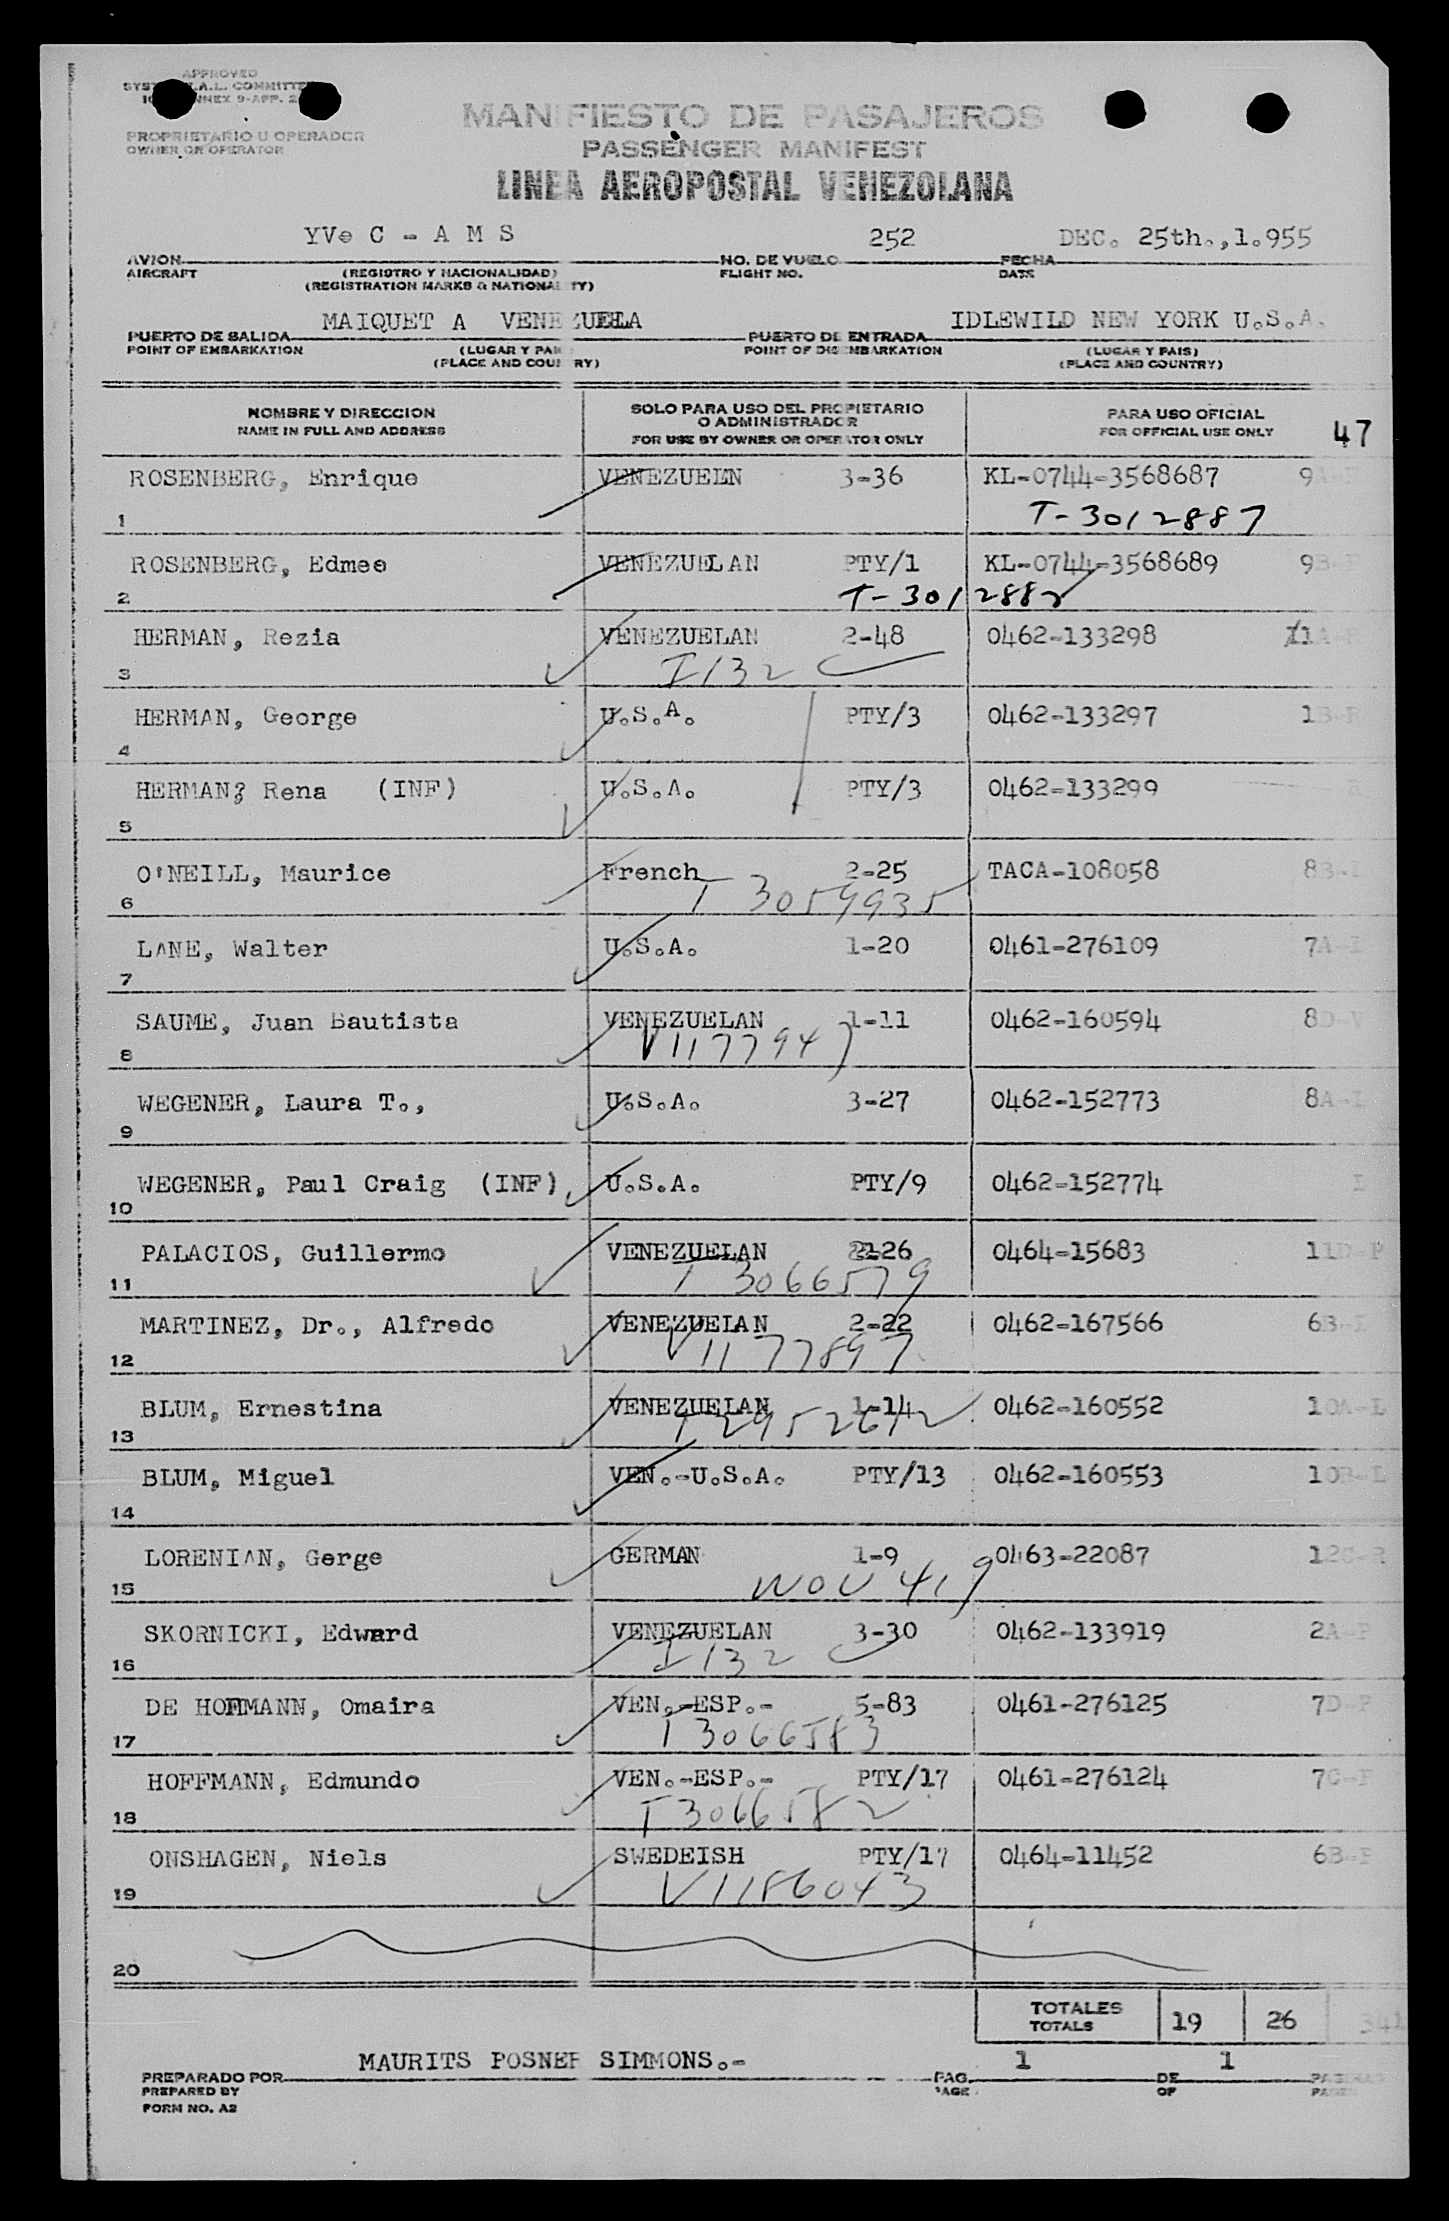 APPROVED
COMMITTE
ANNEX 9-APP. 2
PROPRIETARIO U OPERADOR
OWNER OR OPERATOR
MANIFIESTO DE PASAJEROS
PASSENGER MANIFEST
LINEA AEROPOSTAL VENEZOLANA
YVe C - A M S 252 DEC. 25th.,1.955
AVION NO. DE VUELO FECHA
AIRCRAFT (REGISTRO Y NACIONALIDAD) FLIGHT NO. DATE
(REGISTRATION MARKS & NATIONALITY)
MAIQUET A VENEZUELA IDLEWILD NEW YORK U.S.A.
PUERTO DE SALIDA PUERTO DE ENTRADA
POINT OF EMBARKATION (LUGAR Y PAIS) POINT OF DISEMBARKATION (LUGAR Y PAIS)
(PLACE AND COUNTRY) (PLACE AND COUNTRY)
NOMBRE Y DIRECCION SOLO PARA USO DEL PROPIETARIO PARA USO OFICIAL
O ADMINISTRADOR
NAME IN FULL AND ADDRESS FOR USE BY OWNER OR OPERATOR ONLY FOR OFFICIAL USE ONLY 47
ROSENBERG, Enrique VENEZUELN 3-36 KL-0744-3568687 9A-
1 T-3012887
ROSENBERG, Edmee VENEZUELAN PTY/1 KL-0744-3568689 9B-
2 T-3012882
HERMAN, Rezia VENEZUELAN 2-48 0462-133298 11A-
3 I132
HERMAN, George U.S.A. PTY/3 0462-133297 1B-R
4
HERMAN? Rena (INF) U.S.A. PTY/3 0462-133299
5
O'NEILL, Maurice French 2-25 TACA-108058 8B-
6 T 3059935
LANE, Walter U.S.A. 1-20 0461-276109 7A-
7
SAUME, Juan Bautista VENEZUELAN 1-11 0462-160594 8D-V
8 V1177947
WEGENER, Laura T., U.S.A. 3-27 0462-152773 8A-
9
WEGENER, Paul Craig (INF) U.S.A. PTY/9 0462-152774
10
PALACIOS, Guillermo VENEZUELAN 2126 0464-15683 11D-P
11 T 3066579
MARTINEZ, Dr., Alfredo VENEZUELAN 2-22 0462-167566 6B-
12 V1177897
BLUM, Ernestina VENEZUELAN 1-14 0462-160552 10A-L
13 T2952612
BLUM, Miguel VEN.-U.S.A. PTY/13 0462-160553 10B-L
14
LORENIAN, Gerge GERMAN 1-9 0463-22087 12C-R
15 WOU 419
SKORNICKI, Edward VENEZUELAN 3-30 0462-133919 2A-
16 I132
DE HOFFMANN, Omaira VEN.-ESP.- 5-83 0461-276125 7D-P
17 T3066583
HOFFMANN, Edmundo VEN.-ESP.- PTY/17 0461-276124 7C-
18 T3066582
ONSHAGEN, Niels SWEDEISH PTY/17 0464-11452 6B-
19 V1186043
20
TOTALES
TOTALS 19 26 341
MAURITS POSNER SIMMONS.- 1 1
PREPARADO POR PAG. DE
PREPARED BY PAGE OF
FORM NO. A2